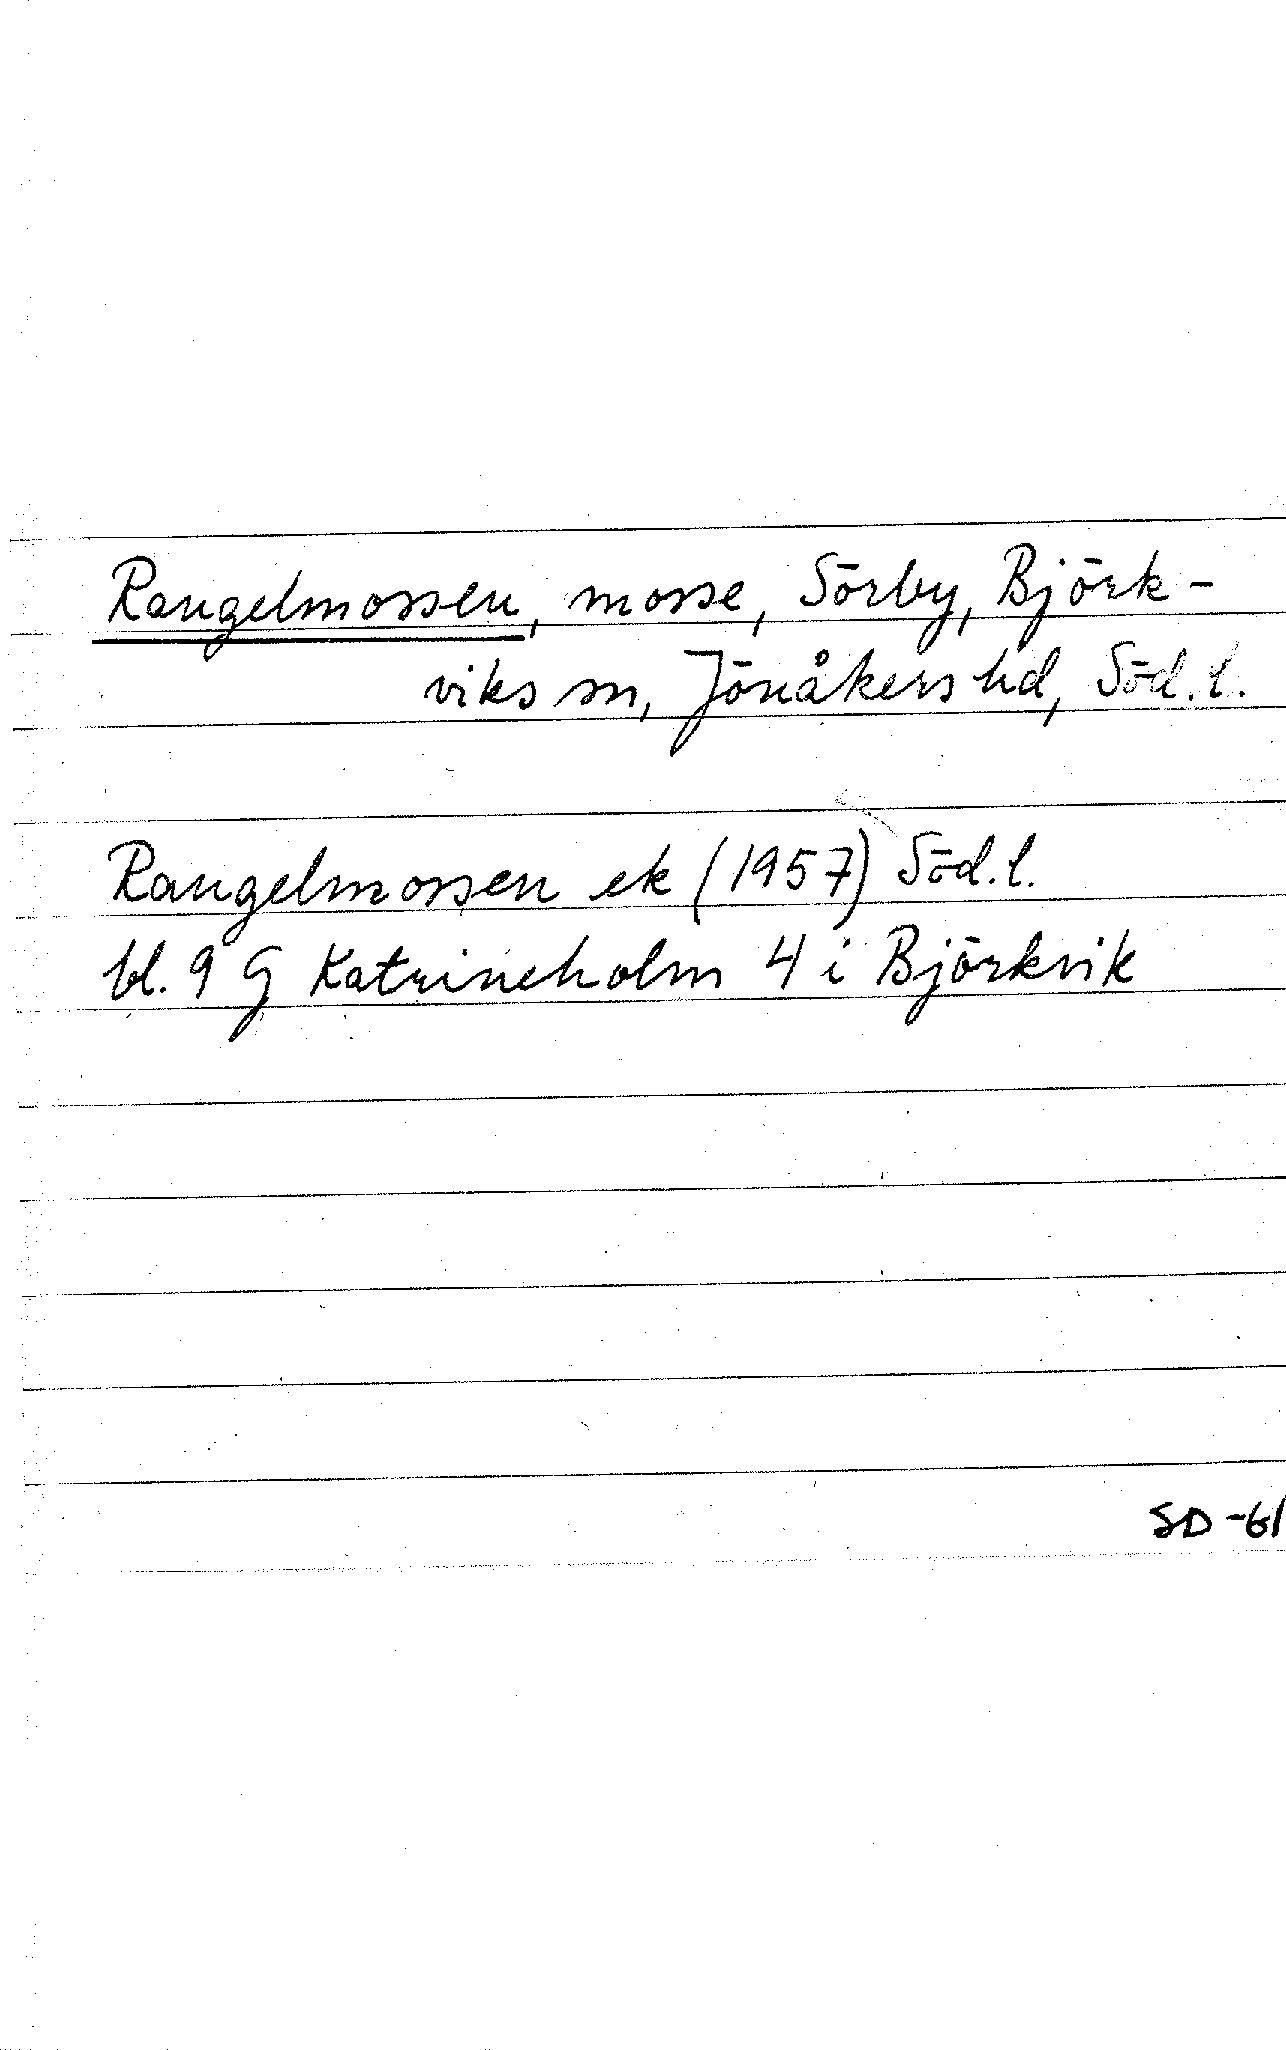 Rangelmossen, mosse, Sörby, Björk-
viks sn, Jönåkers hd, Söd. l.
Rangelmossen ek (1957) Söd. l.
bl. 9 G Katrineholm 4 i Björkvik
SD -61